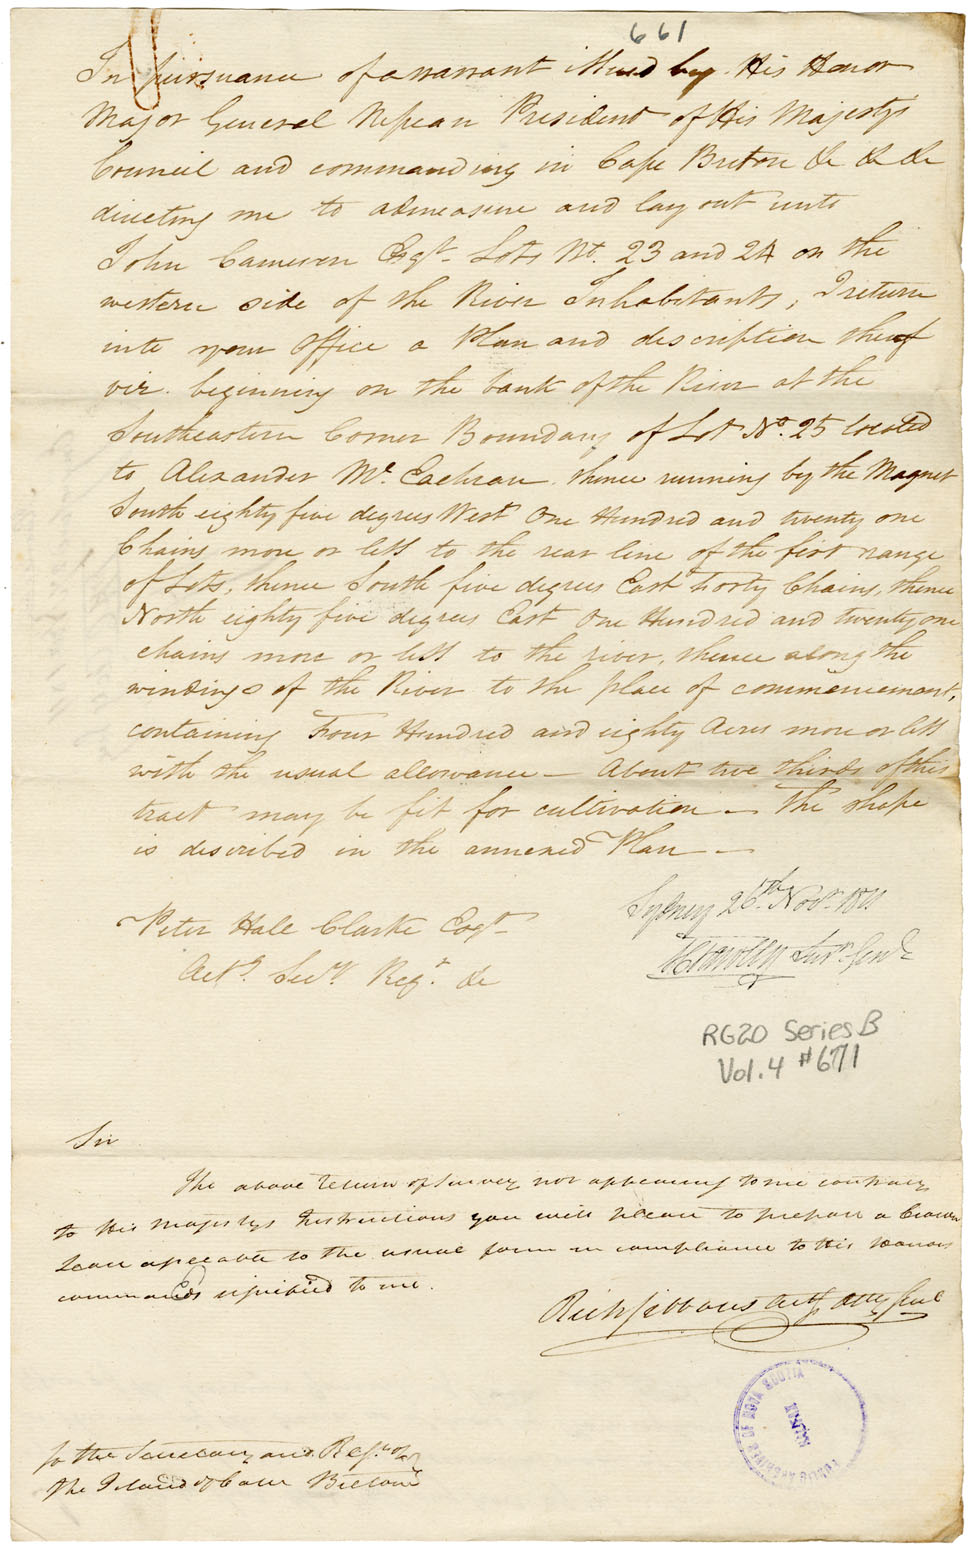 661
In pursuance of a warrant issued by His Honor
Major General Nepean President of His Majestys
Council and commanding in Cape Breton &c &c &c
directing me to admeasure and lay out unto
John Cameron Esqr. Lots No. 23 and 24 on the
western side of the River Inhabitants, I return
into your Office a Plan and description thereof
viz. beginning on the bank of the River at the
Southeastern Corner Boundary of Lot No. 25 located
to Alexander Mc. Eachran. thence running by the Magnet
South eighty five degrees West One Hundred and twenty one
Chains more or less to the rear line of the first range
of Lots, thence South five degrees East Forty Chains, thence
North eighty five degrees East One Hundred and twenty one
chains more or less to the river, thence along the
windings of the River to the place of commencement,
containing Four Hundred and eighty Acres more or less
with the usual allowance — About two thirds of this
tract may be fit for cultivation — The shape
is described in the annexed Plan —
Sydney 26th. Novr. 1811
Peter Hale Clarke Esqr.
Surr. Genl.
Actg. Secy. Regr. &c
RG20 Series B
Vol. 4 #671
Sir
The above return of Survey not appearing to me contrary
to His Majestys Instructions you will please to prepare a Crown
Lease agreeable to the usual form in compliance to His Honors
commands signified to me.
Rich Gibbons Actg Atty Genl
To the Secretary and Regr. of
the Island of Cape Breton
PUBLIC ARCHIVES OF NOVA SCOTIA